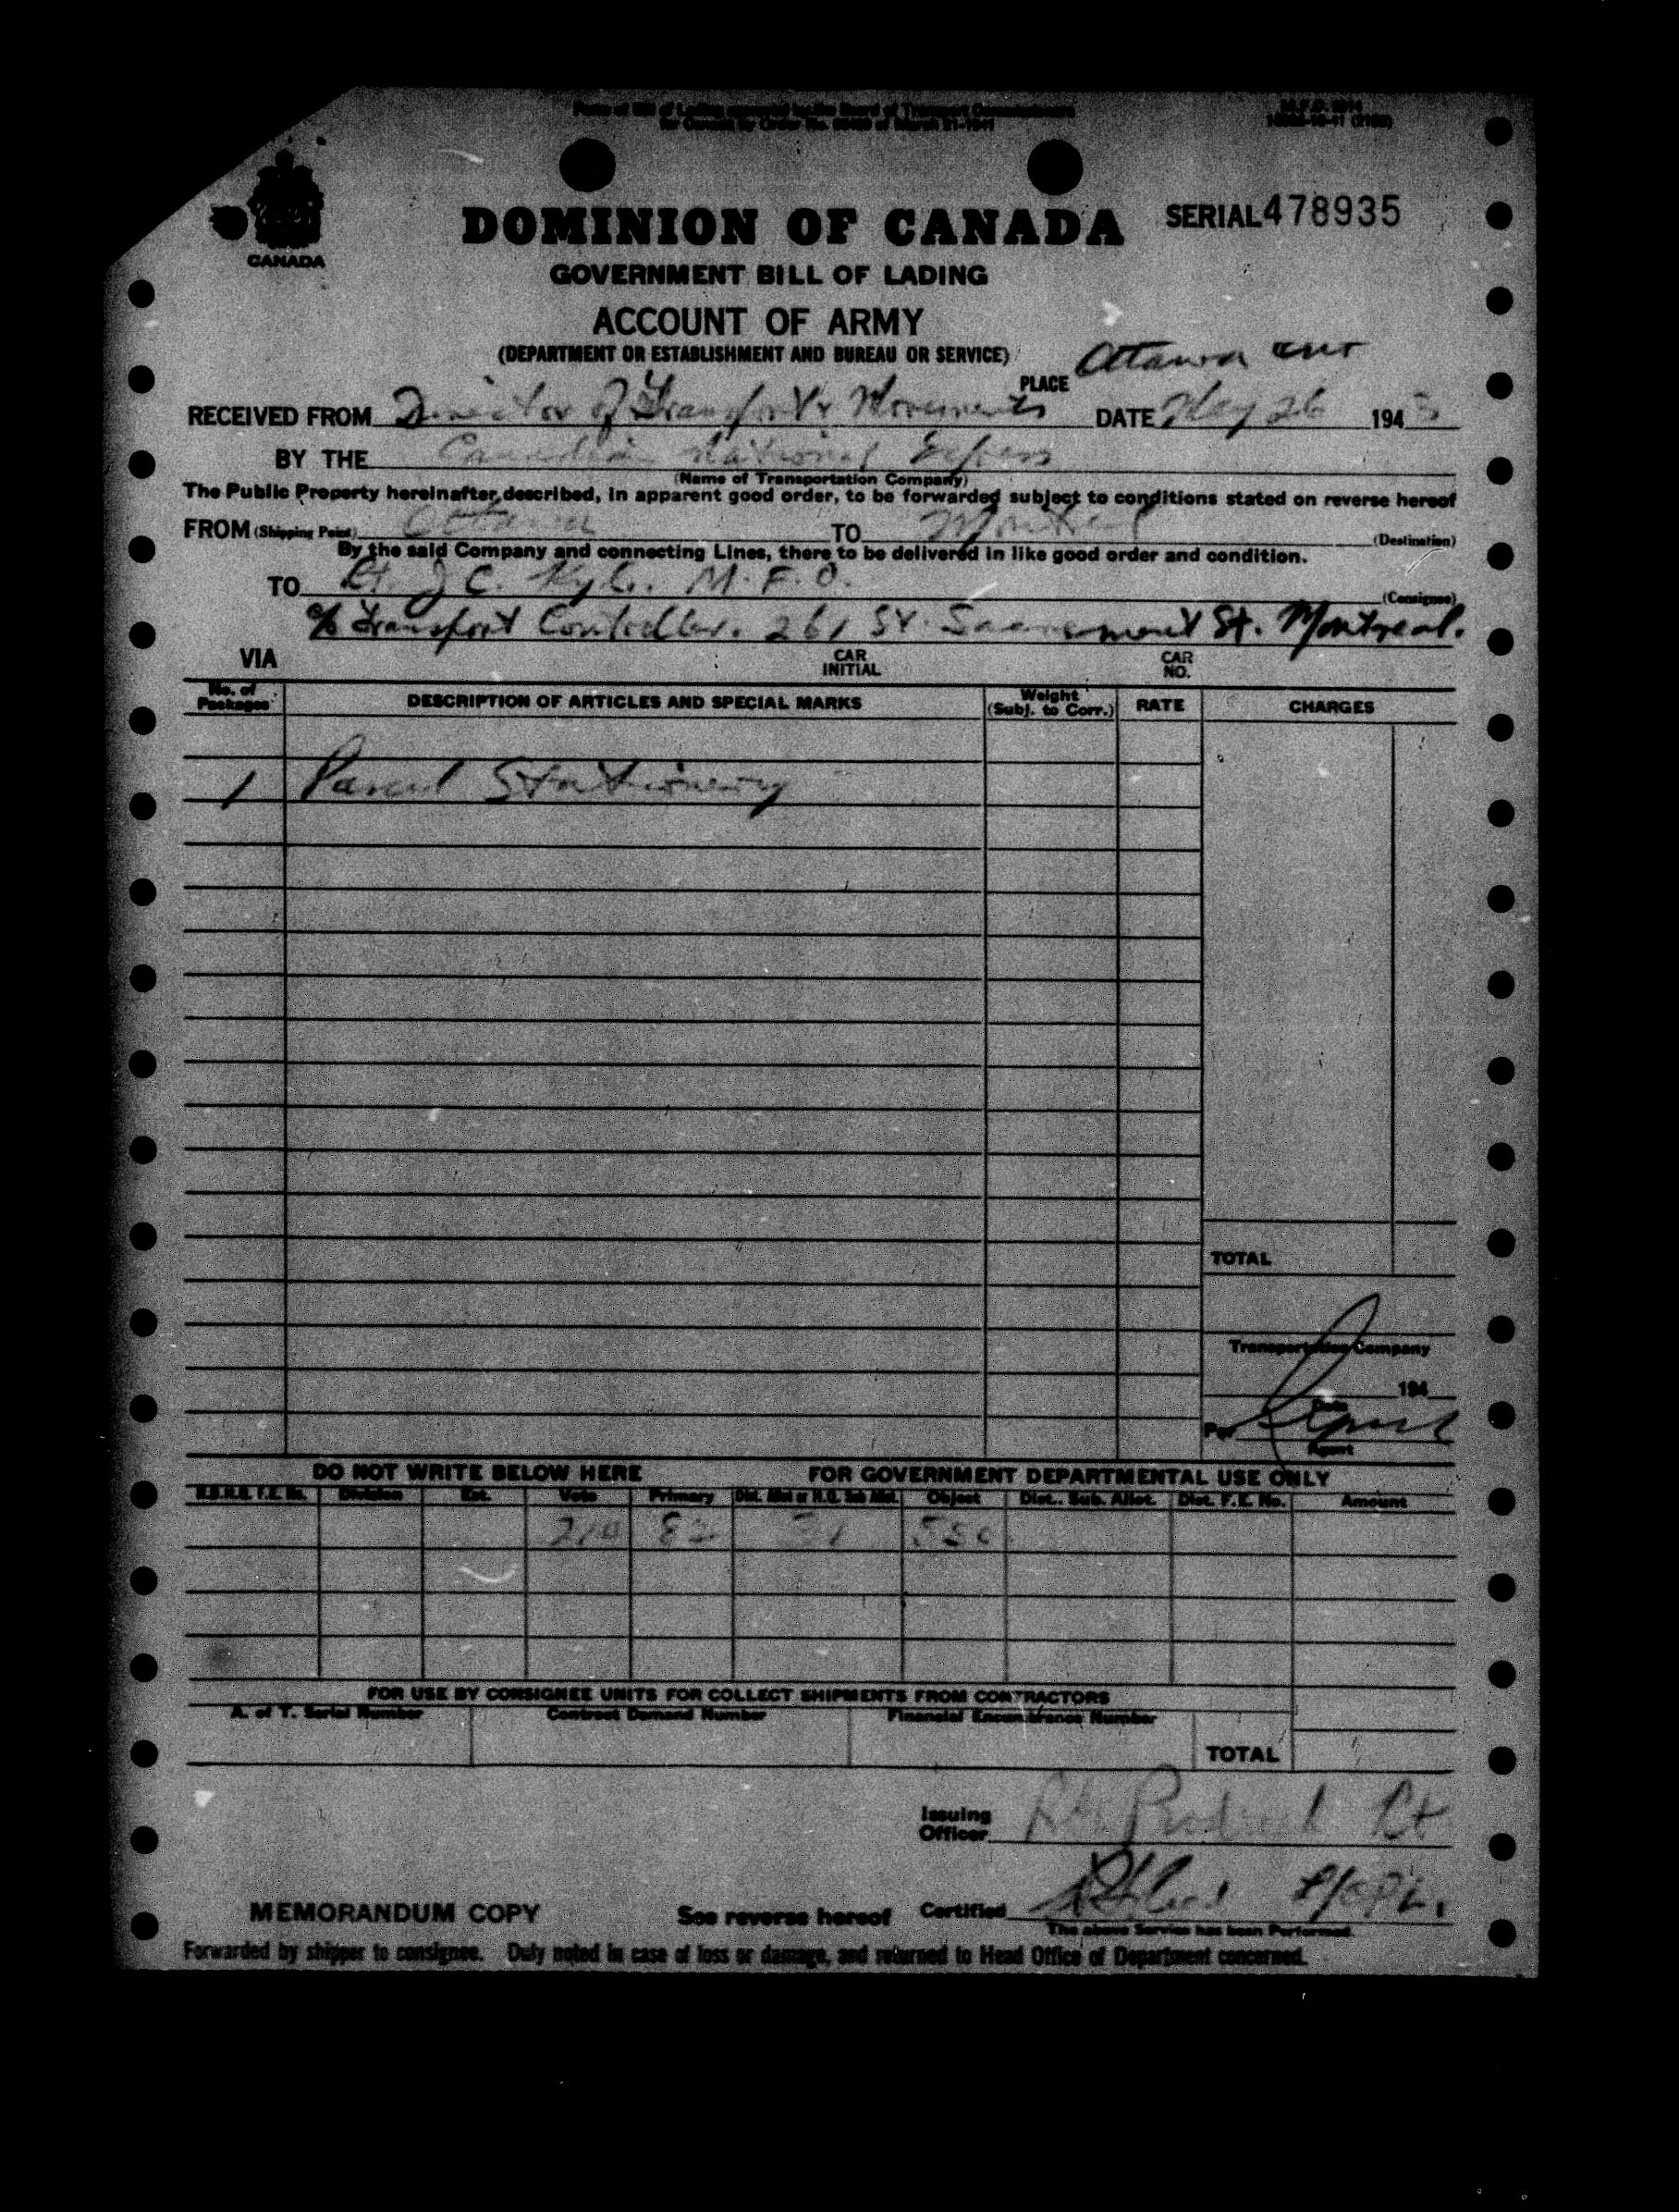 Form of Bill of Lading approved by the Board of Transport Commissioners
for Canada by Order No. of March 21-1941
CANADA
DOMINION OF CANADA
SERIAL 478935
GOVERNMENT BILL OF LADING
ACCOUNT OF ARMY
(DEPARTMENT OR ESTABLISHMENT AND BUREAU OR SERVICE)
PLACE Ottawa Ont
RECEIVED FROM Director of Transport & Movements DATE May 26 1943
BY THE Canadian National Express
(Name of Transportation Company)
The Public Property hereinafter described, in apparent good order, to be forwarded subject to conditions stated on reverse hereof
FROM (Shipping Point) Ottawa TO Montreal (Destination)
By the said Company and connecting Lines, there to be delivered in like good order and condition.
TO Lt. J C. Kyle. M.F.O. (Consignee)
c/o Transport Controller. 261 St. Sacrement St. Montreal.
VIA CAR INITIAL CAR NO.
No. of Packages DESCRIPTION OF ARTICLES AND SPECIAL MARKS Weight (Subj. to Corr.) RATE CHARGES
1 Parcel Stationery
TOTAL
Transportation Company
194
Date
Per
Agent
DO NOT WRITE BELOW HERE FOR GOVERNMENT DEPARTMENTAL USE ONLY
Division Est. Vote Primary Dist. Allot or H.Q. Sub Allot. Object Dist. Sub. Allot. Dist. F.E. No. Amount
210 82 31 550
FOR USE BY CONSIGNEE UNITS FOR COLLECT SHIPMENTS FROM CONTRACTORS
A. of T. Serial Number Contract Demand Number Financial Encumbrance Number
TOTAL
Issuing Officer Lt
MEMORANDUM COPY See reverse hereof Certified
The above Service has been Performed.
Forwarded by shipper to consignee. Duly noted in case of loss or damage, and returned to Head Office of Department concerned.